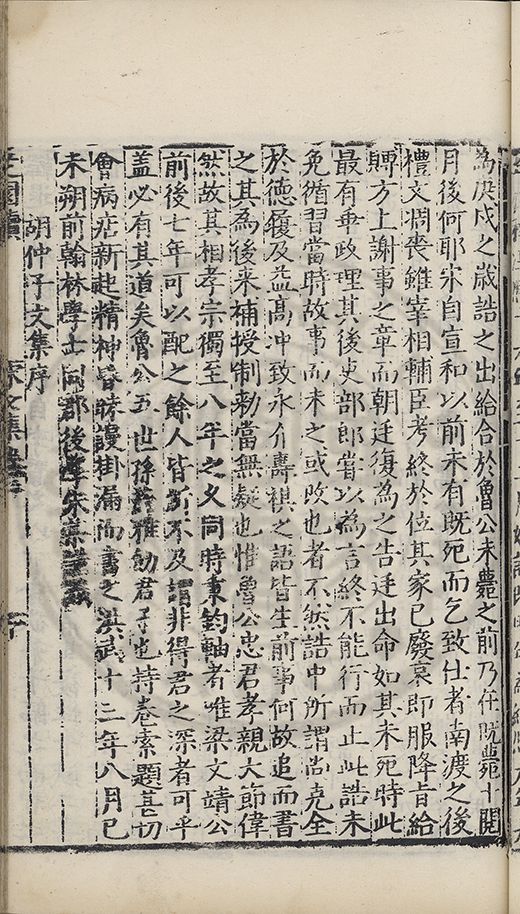 為庚戌之歲誥之出給合於魯公未薨之前乃在既薨十閱
月後何耶宋自宣和以前未有既死而乞致仕者南渡之後
禮文凋喪雖宰相輔臣考終於位其家已發哀即服降旨給
賻方上謝事之章而朝廷復為之告廷出命如其未死時此
最有乖政理其後吏部郎嘗以為言終不能行而止此誥未
免循習當時故事而未之或改也者不然誥中所謂尚克全
於德履及益高冲致永介壽祺之語皆生前事何故追而書
之其為後来補授制勅當無疑也惟魯公忠君孝親大節偉
然故其相孝宗獨至八年之久同時秉鈞軸者唯梁文靖公
前後七年可以配之餘人皆所不及謂非得君之深者可乎
盖必有其道矣魯公五世孫雅飭君子也持卷索題甚切
會病店新起精神昏眊謾掛漏而書之洪武十三年八月己
未朔前翰林學士同郡後學宋濂謹
胡仲子文集序
宋文集卷